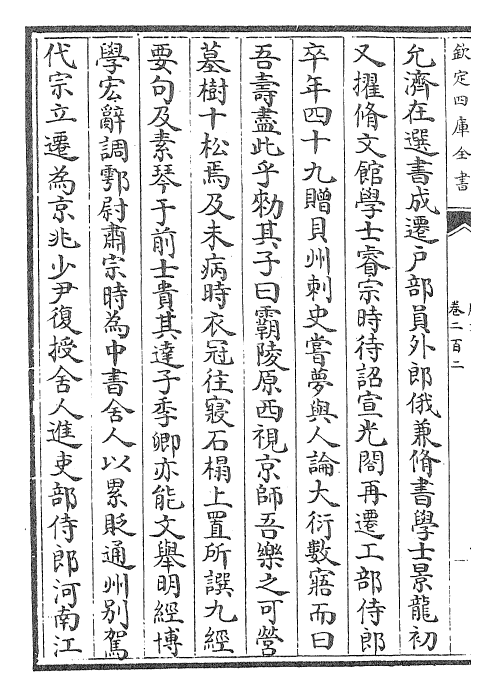 欽定四庫全書
卷二百二
允濟在選書成遷户部員外郎俄兼脩書學士景龍初
又擢脩文館學士睿宗時待詔宣光閣再遷工部侍郎
卒年四十九贈貝州刺史嘗夢與人論大衍數寤而曰
吾壽盡此乎勑其子曰霸陵原西視京師吾樂之可營
墓樹十松焉及未病時衣冠往寢石榻上置所譔九經
要句及素琴于前士貴其達子季卿亦能文舉明經博
學宏辭調鄠尉肅宗時為中書舍人以累貶通州别駕
代宗立遷為京兆少尹復授舍人進吏部侍郎河南江